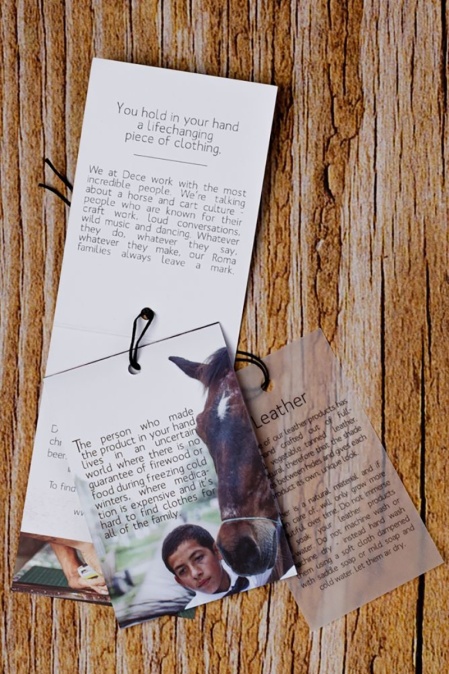 You hold in your hand
a lifechanging
piece of clothing.
We at Dece work with the most
incredible people. We're talking
about a horse and cart culture -
people who are known for their
craft work, loud conversations,
wild music and dancing. Whatever
they do, whatever they say,
whatever they make, our Roma
families always leave a mark.
The person who made
the product in your hand
lives in an uncertain
world where there is no
guarantee of firewood or
food during freezing cold
winters, where medica-
tion is expensive and it's
hard to find clothes for
all of the family.
To find
Leather
of our leather products has
crafted out of full
vegetable tanned leather.
the shade
between hides and gives each
product its own unique look.
is a natural material, and if
care for it, will only grow more
over time. Do not immerse
your leather products
machine wash or
dry - instead hand wash
using a soft cloth dampened
with saddle soap or mild soap and
cold water. Let them air dry.